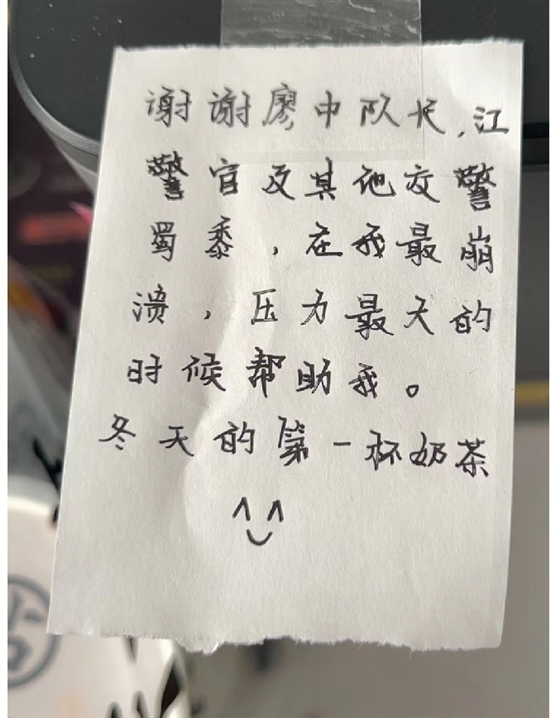 谢谢廖中队长,江
警官及其他交警
蜀黍,在我最崩
溃,压力最大的
时候帮助我。
冬天的第一杯奶茶